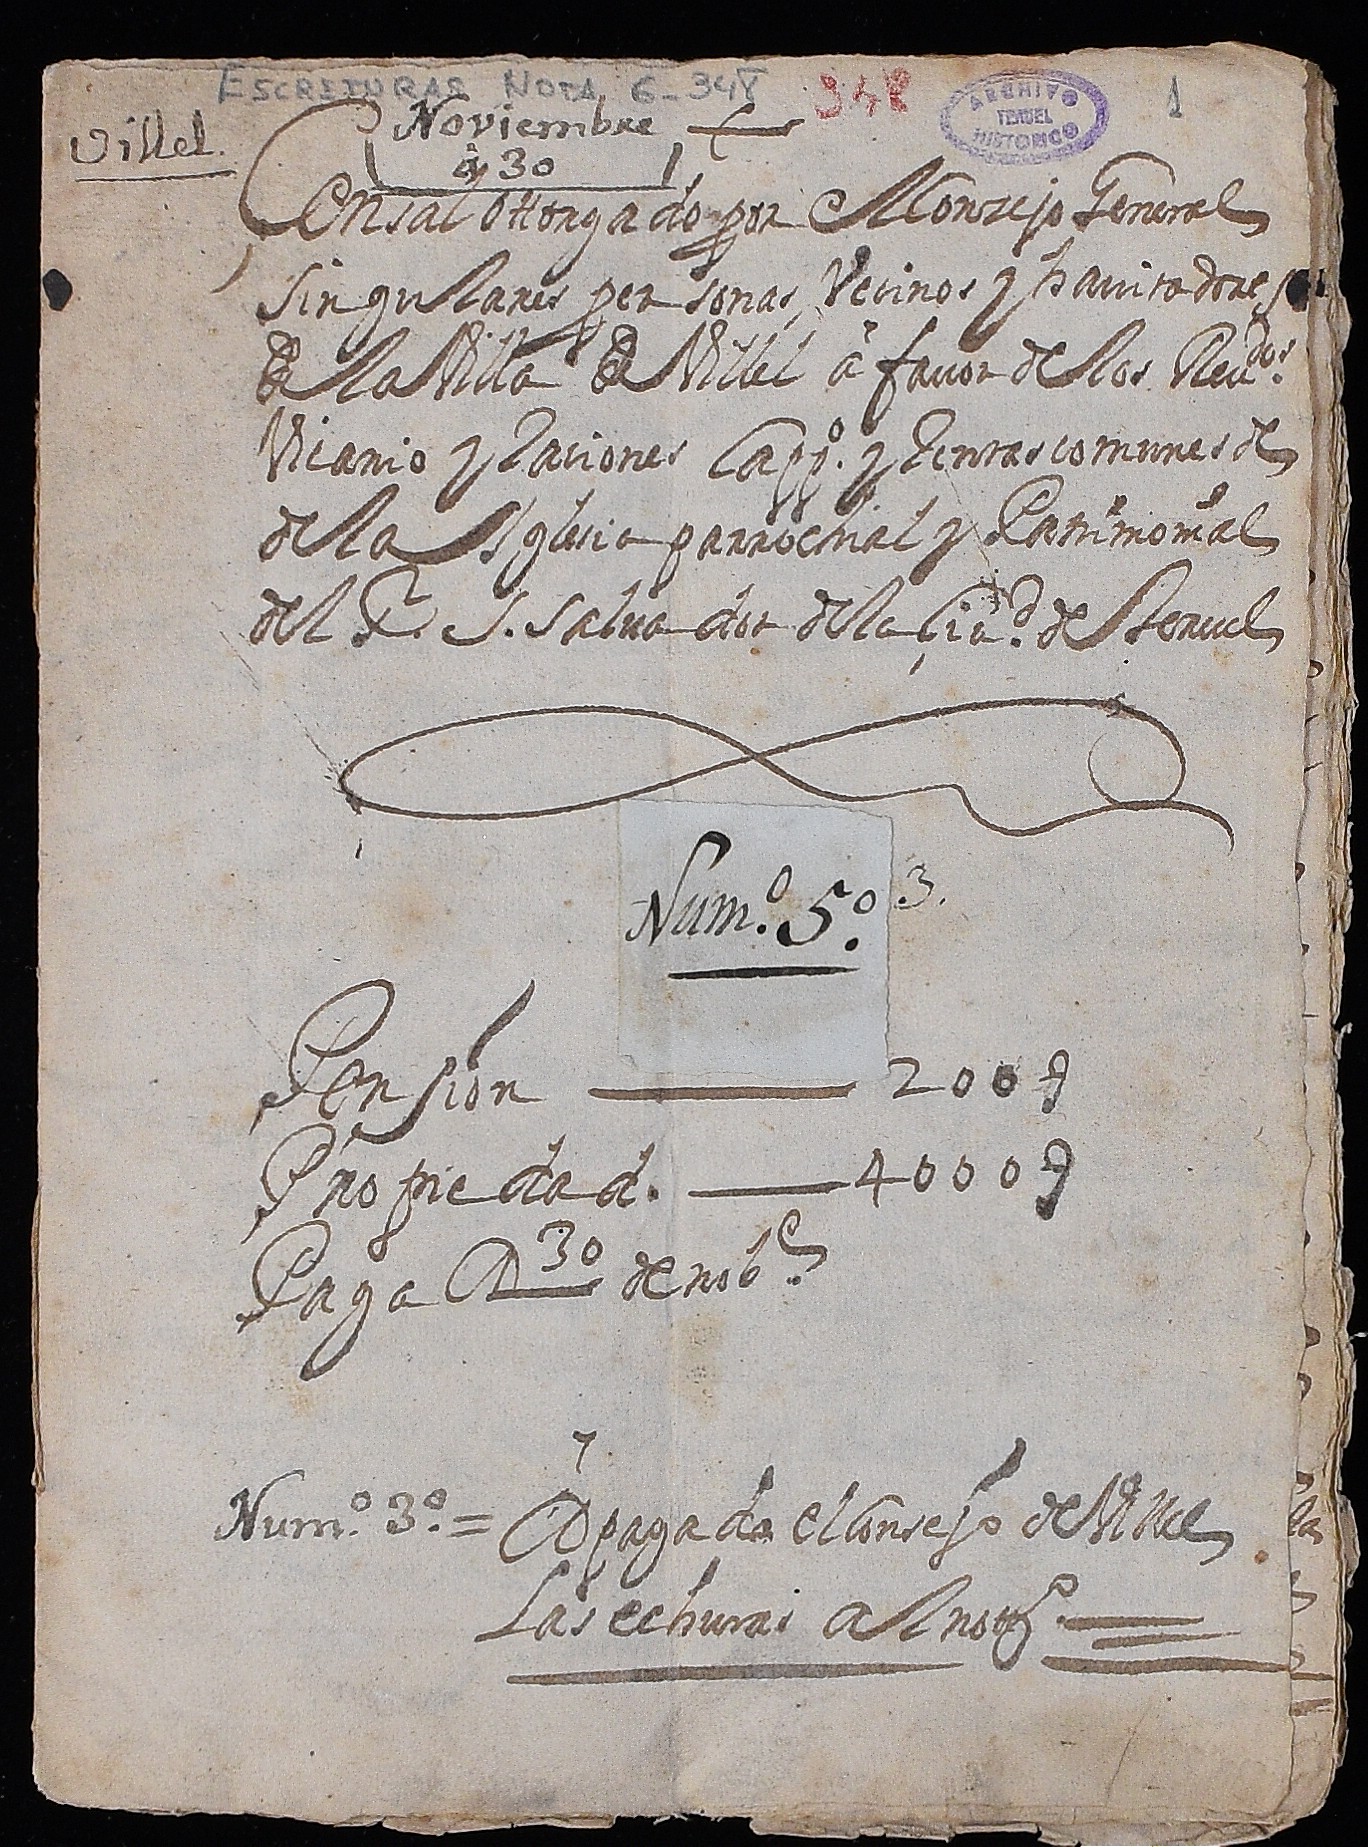 ESCRITURAS NOTA. 6-348
348
ARCHIVO
TERUEL
HISTORICO
1
Villel.
Noviembre
â 30
Censal ottorgado por el Conzejo General
singulares personas, Vecinos y havitadores
de la Villa de Villel â fauor de los Reudos.
Vicario y Raciones Cappo. y Rentas comunes de
de la Yglesia parrochial y Patrimonial
del Sr. S. Saluador de la Ciud. de Teruel
Num.º 5.º
3.
Pension 200 s
Propiedad. 4000 s
Paga A 30 de nobe.
Num.º 3.º = A pagado el Consejo de Villel
Las echuras al noto.